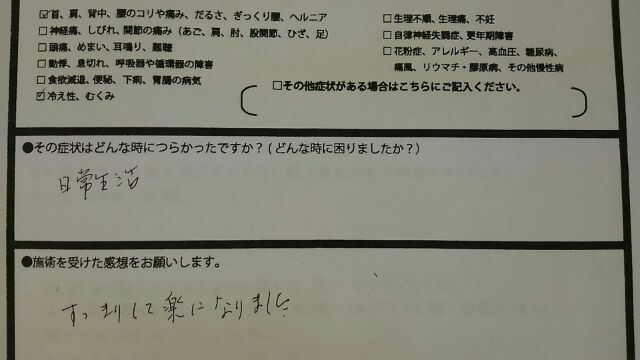 ☑首、肩、背中、腰のコリや痛み、だるさ、ぎっくり腰、ヘルニア
□神経痛、しびれ、関節の痛み（あご、肩、肘、股関節、ひざ、足）
□頭痛、めまい、耳鳴り、難聴
□動悸、息切れ、呼吸器や循環器の障害
□食欲減退、便秘、下痢、胃腸の病気
☑冷え性、むくみ
□生理不順、生理痛、不妊
□自律神経失調症、更年期障害
□花粉症、アレルギー、高血圧、糖尿病、
痛風、リウマチ・膠原病、その他慢性病
□その他症状がある場合はこちらにご記入ください。
●その症状はどんな時につらかったですか？(どんな時に困りましたか？)
日常生活
●施術を受けた感想をお願いします。
すっきりして楽になりました